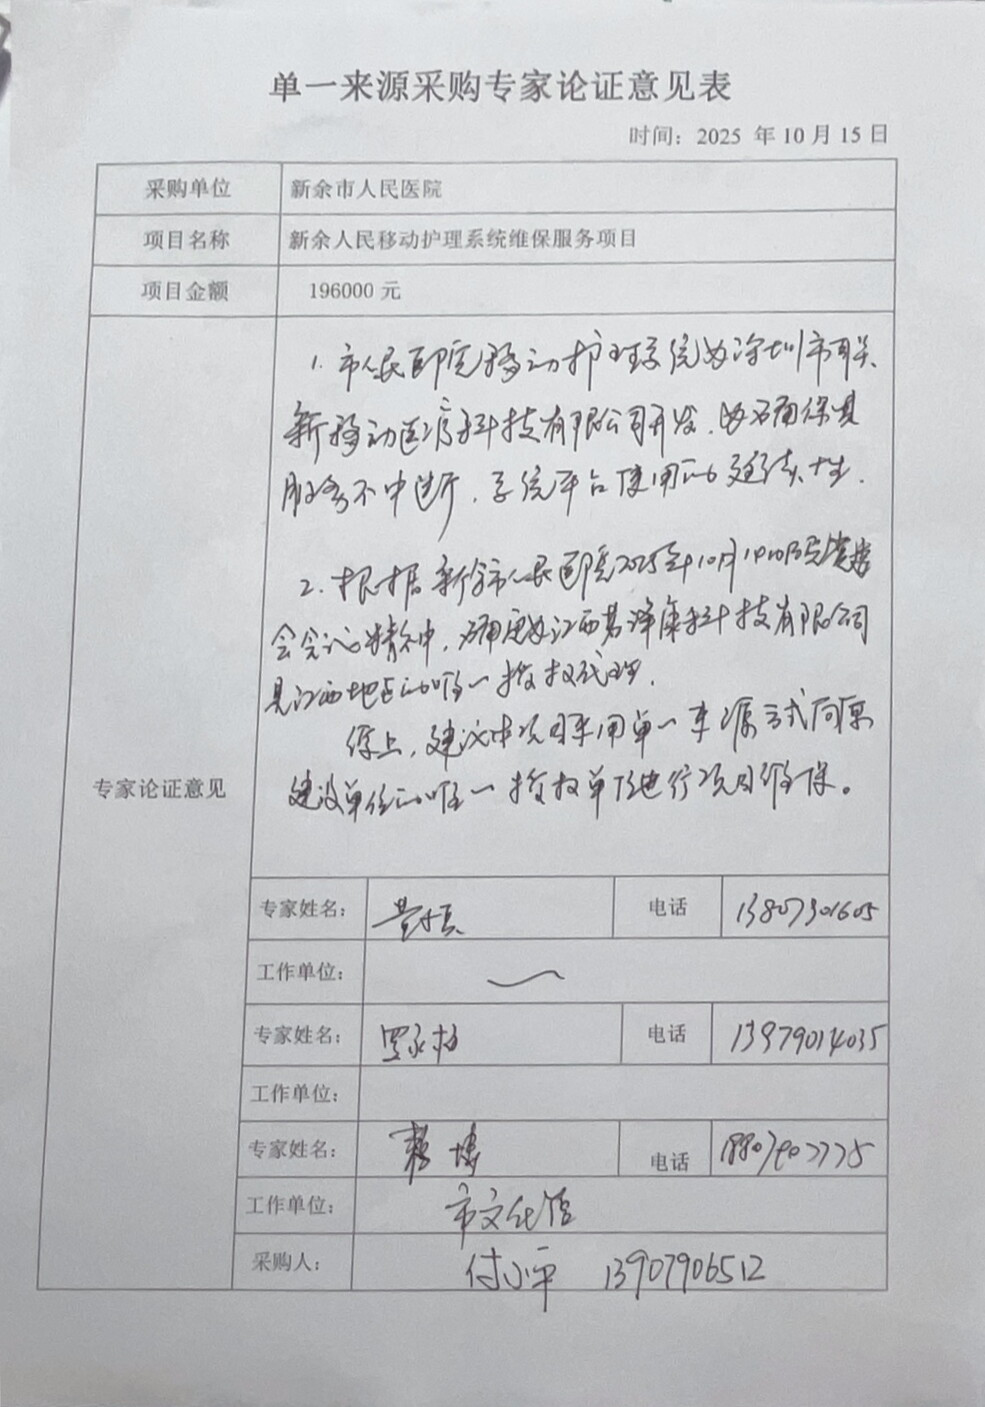 单一来源采购专家论证意见表
时间：2025 年 10 月 15 日
采购单位 新余市人民医院
项目名称 新余人民移动护理系统维保服务项目
项目金额 196000 元
专家论证意见
1. 市人民医院移动护理系统为深圳市联
新移动医疗科技有限公司开发，为确保其
服务不中断，系统平台使用的延续性.
2. 根据新余市人民医院2025年10月14日
会会议精神，确定为江西 康科技有限公司
是江西地区的唯一授权代理.
综上，建议本项目采用单一来源方式向原
建设单位的唯一授权单位进行项目维保。
专家姓名： 电话 13807901605
工作单位：
专家姓名： 罗永 电话 13979014035
工作单位：
专家姓名： 电话
工作单位： 市文化馆
采购人： 付小平 13907906512